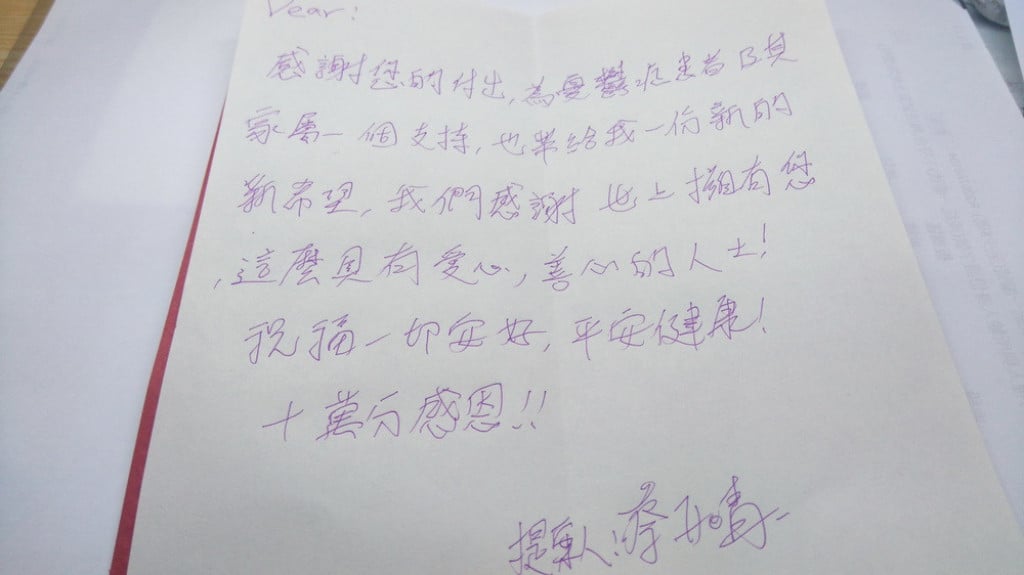 Dear:
感謝您的付出,為憂鬱症患者及其
家屬一個支持,也帶給我一份新的
新希望,我們感謝世上擁有您
,這麼具有愛心,善心的人士!
祝福一切安好,平安健康!
十萬分感恩!!
提案人:蔡